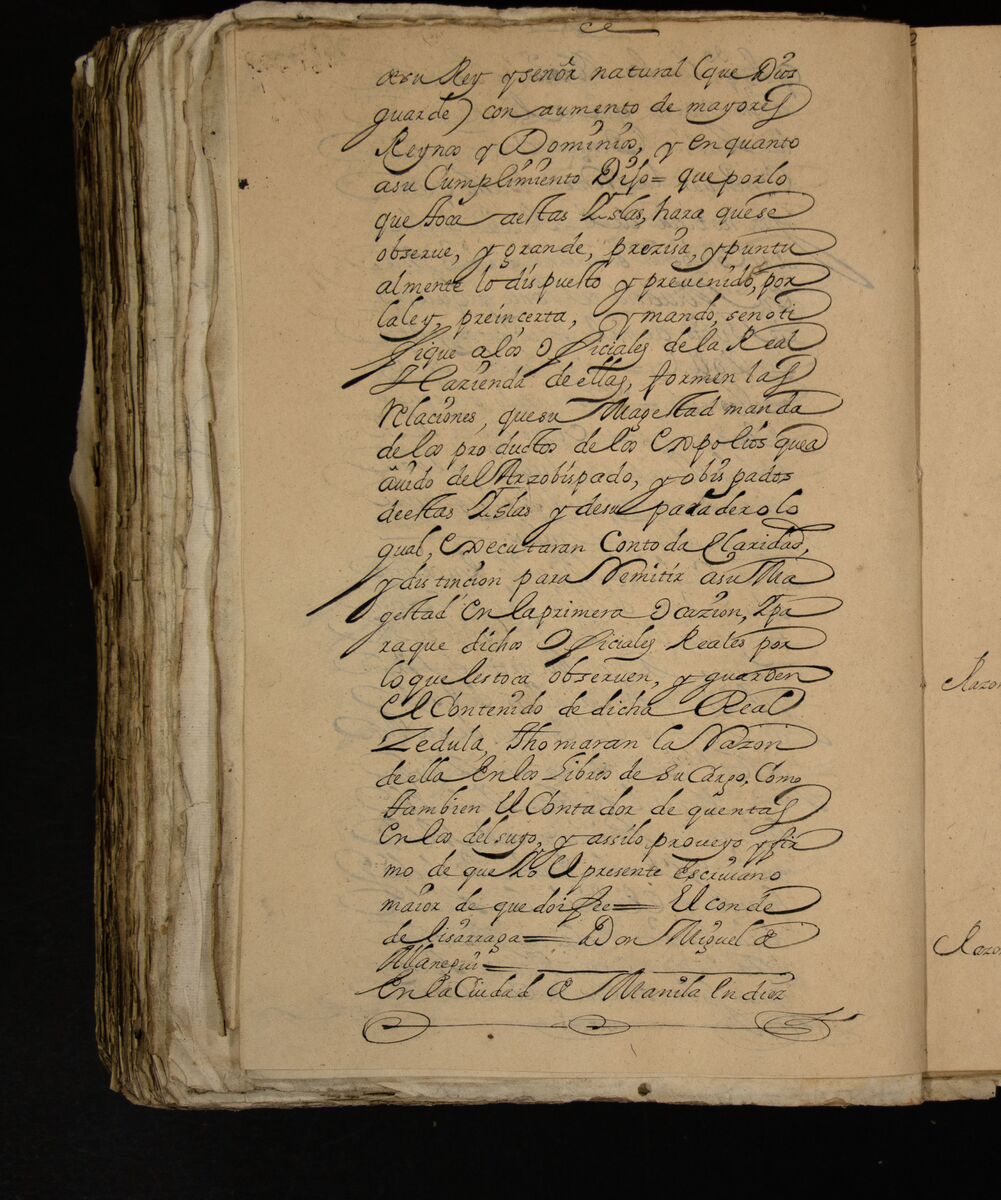 desu Rey y señor natural (que Dios
guarde) con aumento de mayores
Reynos y Dominios, y en quanto
asu Cumplimiento Dijo= que por lo
que toca aestas Yslas, hara que se
observe, y grande, precisa, y puntu
almente lo dispuesto y prevenido, por
la ley, preincerta, y mando, se noti
fique alos Oficiales de la Real
Hazienda de ellas, formen las
Relaciones, que su Magestad manda
de los productos de los Expolios que a
avido del Arzobispado, y obispados
deestas Yslas y desu paradero lo
qual, Executaran Con toda Claridad,
y distincion para Remitir asu Ma
gestad en la primera Ocazion, Y pa
raque dichos Oficiales Reales por
lo que les toca observen, y guarden
El Contenido de dicha Real
Zedula, thomaran la Razon
de ella en los Libros de su Cargo, Como
tambien El Contador de quentas
en los del suyo, y assilo proveyo y fir
mo de que Yo El presente Escrivano
maior de que doi fee= El conde
de lisarraga= Don Miguel de
Allanegui=
En la Ciudad de Manila en diez
Razon
Razon